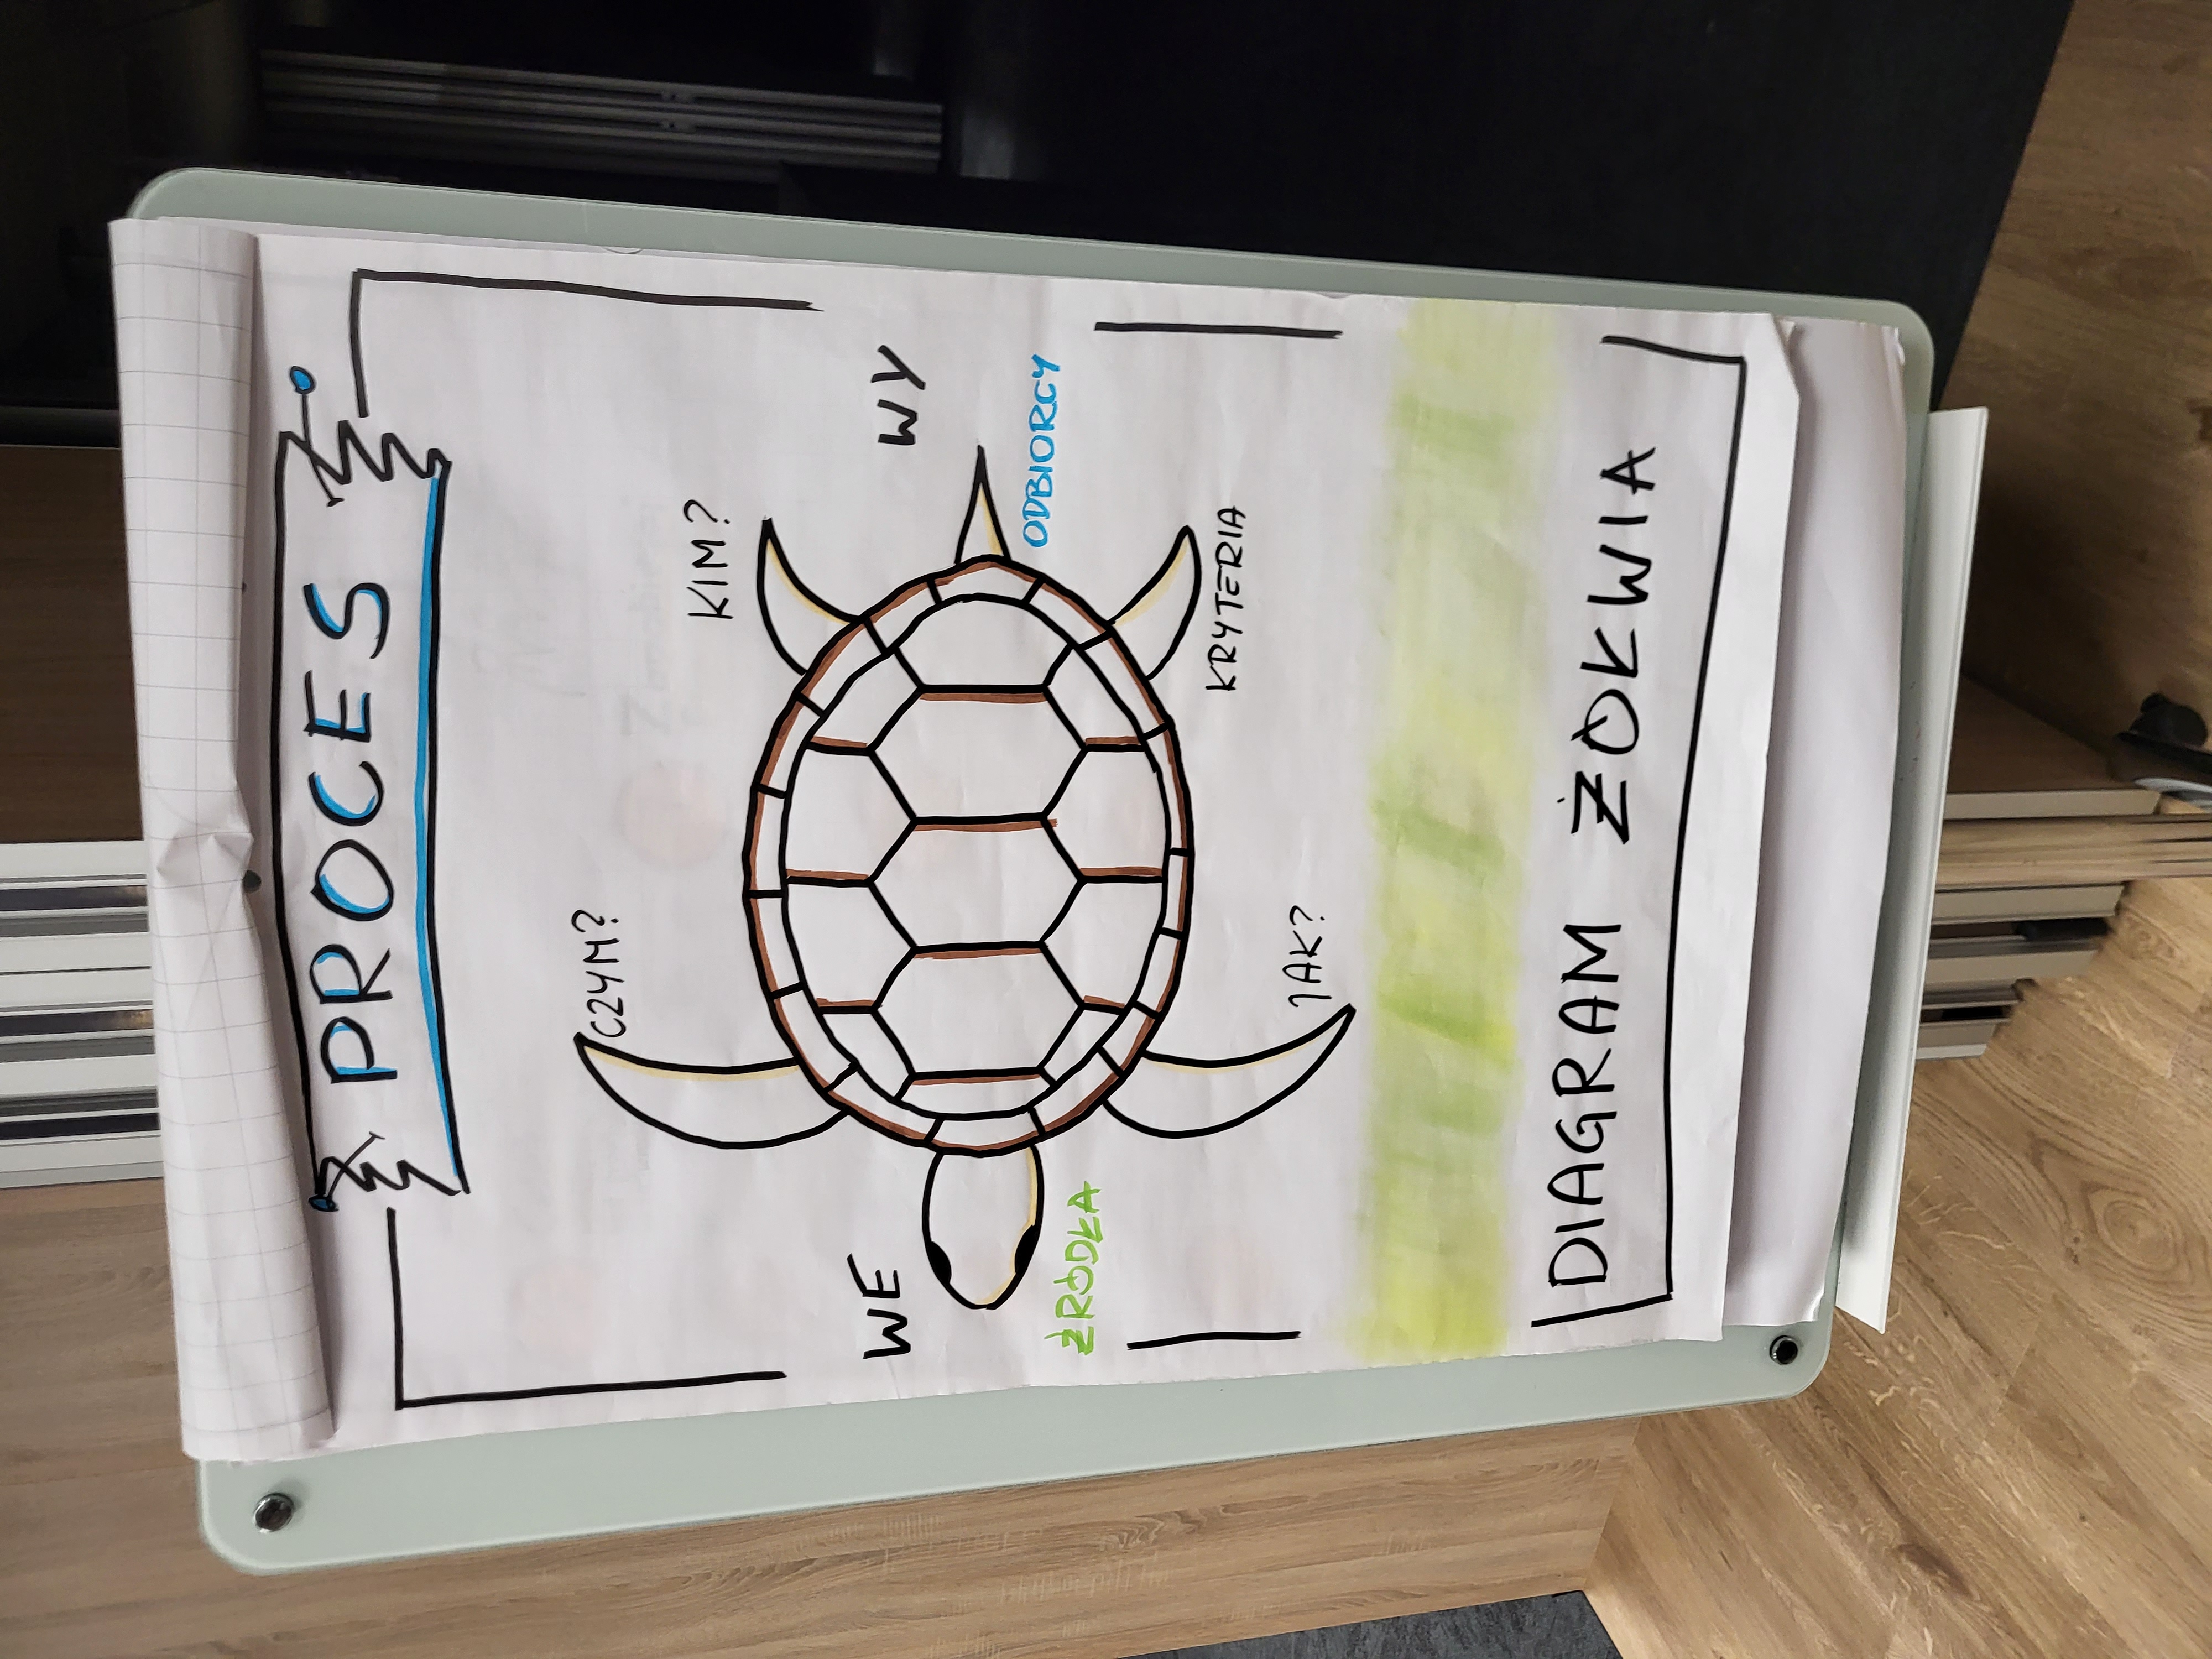 PROCES
CZYM?
KIM?
WE
WY
ŹRÓDŁA
ODBIORCY
KRYTERIA
JAK?
DIAGRAM ŻÓŁWIA